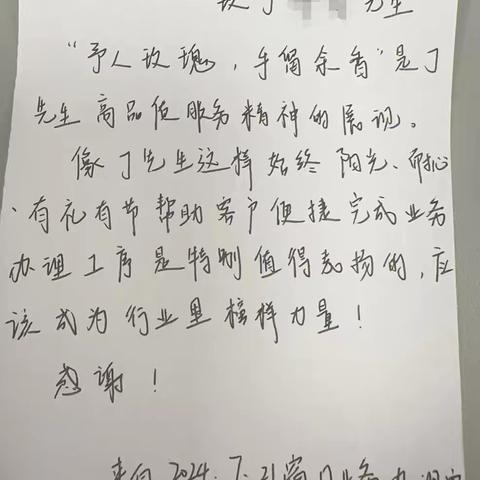 致丁 先生
“予人玫瑰，手留余香”是丁
先生高品位服务精神的展现。
像丁先生这样始终阳光、耐心
、有礼有节帮助客户便捷完成业务
办理工序是特别值得表扬的，应
该成为行业里榜样力量！
感谢！
来自2024.7.21窗口业务办理